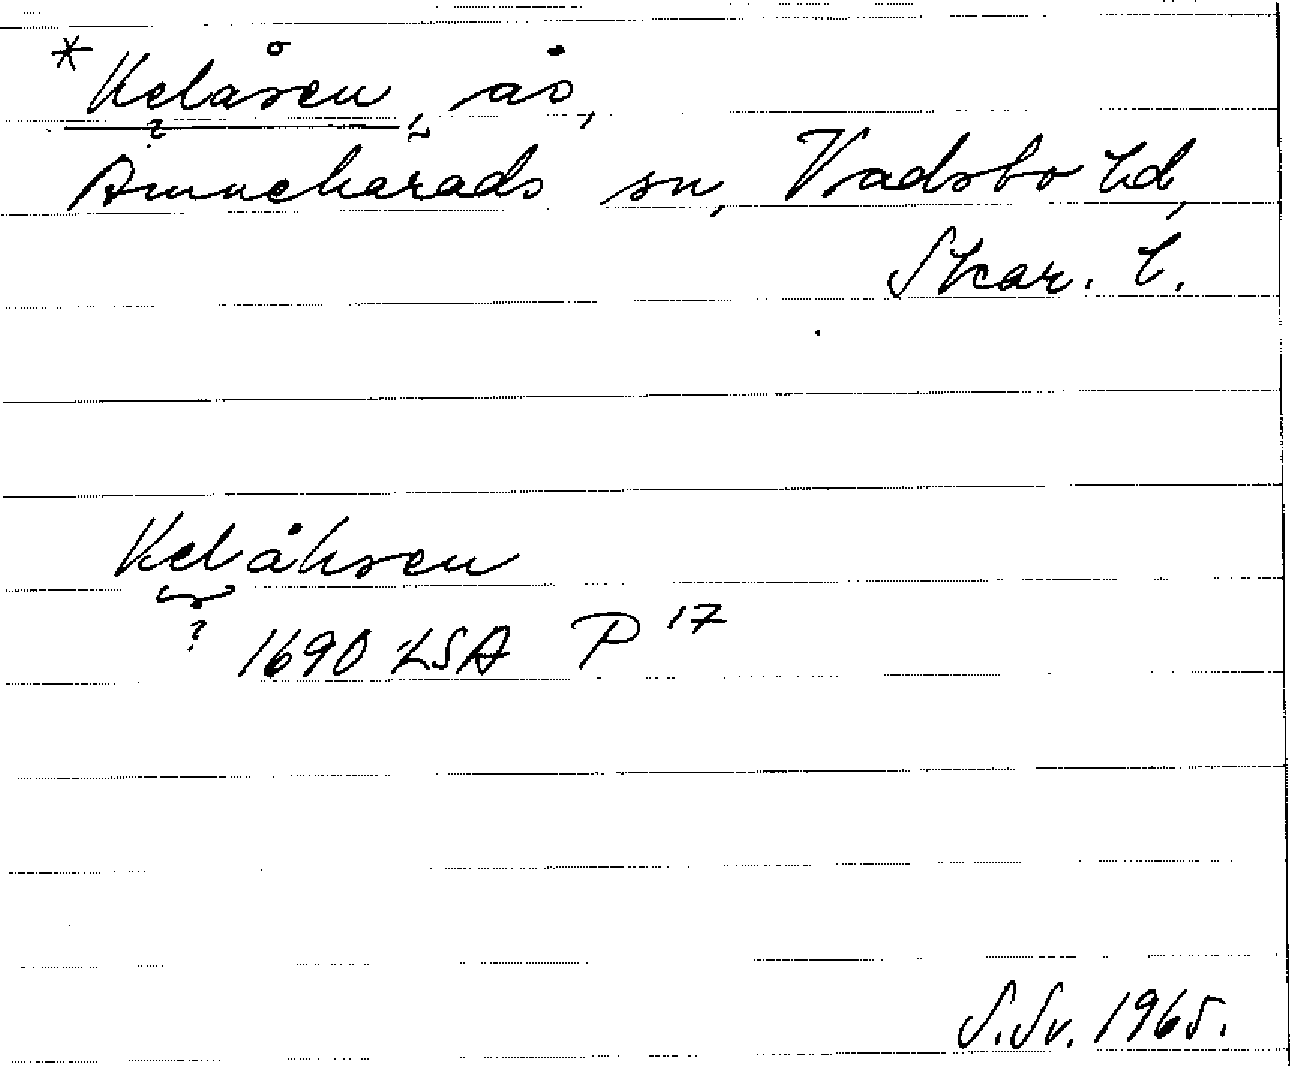 *Kelåsen, ås,
?
Amnehärads sn, Vadsbo hd,
Skar. l.
Kelåhsen
?
1690 LSA P 17
S.Sv. 1965.